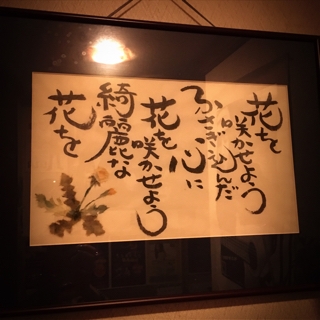 花を
咲かせよう
ふさぎ込んだ
心に
花を
咲かせよう
綺麗な
花を